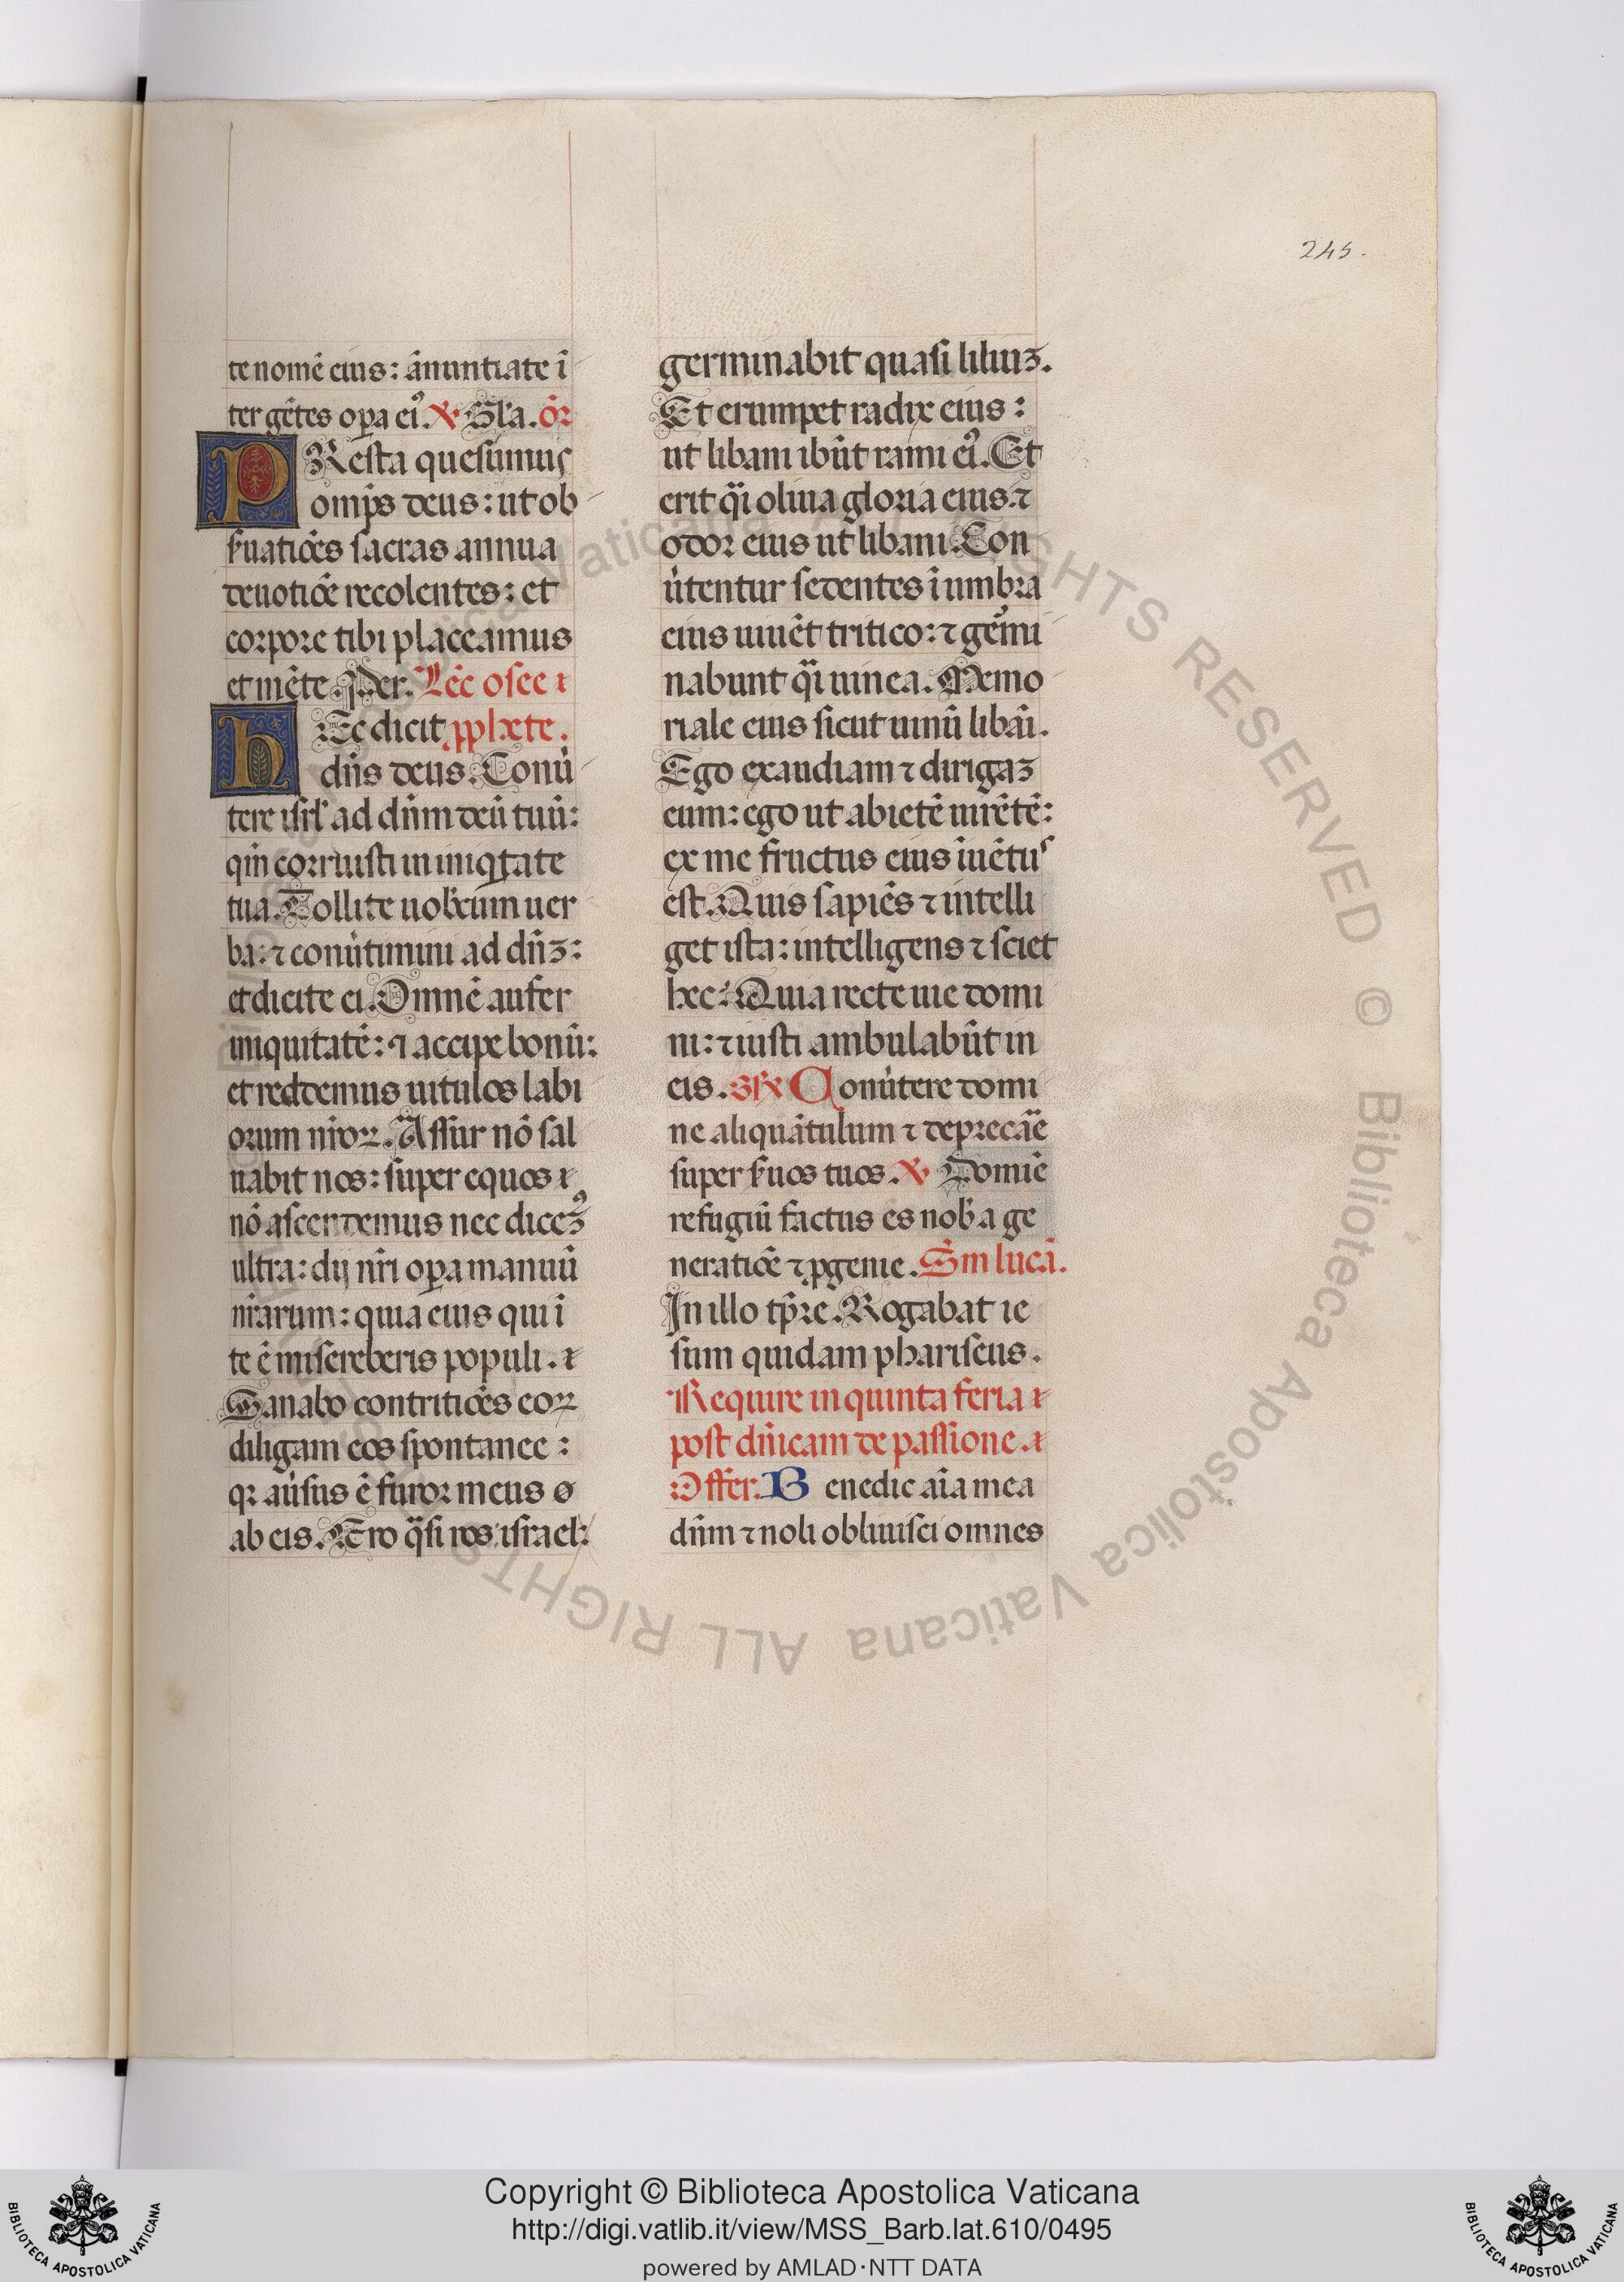 245.
te nomē eius: ānuntiate ī
ter gētes opa ei⁹. ℣ Gl'a. ōr
PResta quesumus
omips deus: ut ob
ẜuatiōes sacras annua
deuotiōe recolentes: et
corpore tibi placeamus
et mēte. Per. Lēc osee
HEc dicit pphete.
dn̄s deus. Conu̇
tere isrl' ad dn̄m deū tuū:
qm̄ corruisti in iniqtate
tua. Tollite uobcum uer
ba: ⁊ conu̇timini ad dn̄ꝫ:
et dicite ei. Omnē aufer
iniquitatē: ⁊ accipe bonū:
et reddemus uitulos labi
orum nr̄oꝝ. Assur nō sal
uabit nos: super equos
nō ascendemus nec diceꝫ⁹
ultra: dij nr̄i opa manuū
nr̄arum: quia eius qui ī
te ē misereberis populi.
Sanabo contritiōes eoꝝ
diligam eos spontanee:
qꝛ au̇sus ē furor meus
ab eis. Ero q̄si ros: israel:
germinabit quasi liliuꝫ.
Et erumpet radix eius:
ut libani ibūt rami ei⁹. Et
erit q̄i oliua gloria eius. ⁊
odor eius ut libani. Con
u̇tentur sedentes ī umbra
eius uiuēt tritico: ⁊ geṁi
nabunt q̄i uinea. Memo
riale eius sicut uinū libāi.
Ego exaudiam ⁊ dirigaꝫ
eum: ego ut abietē uirētē:
ex me fructus eius īuētuˢ
est. Quis sapiēs ⁊ intelli
get ista: intelligens ⁊ sciet
hec: Quia recte uie domi
ni: ⁊ iusti ambulabūt in
eis. Conu̇tere domi
ne aliquātulum ⁊ deprecāe
super ẜuos tuos. ℣ Domiē
refugiū factus es nob' a ge
neratiōe ⁊ pgenie. Sm lucā.
In illo tp̄re. Rogabat ie
sum quidam phariseus.
Require in quinta feria
post dn̄icam de passione.
Offer. Benedic aīa mea
dn̄m ⁊ noli obliuisci omnes
Biblioteca Apostolica Vaticana ALL RIGHTS RESERVED © Biblioteca Apostolica Vaticana ALL RIGHTS
Copyright © Biblioteca Apostolica Vaticana
http://digi.vatlib.it/view/MSS_Barb.lat.610/0495
powered by AMLAD·NTT DATA
BIBLIOTECA APOSTOLICA VATICANA
BIBLIOTECA APOSTOLICA VATICANA